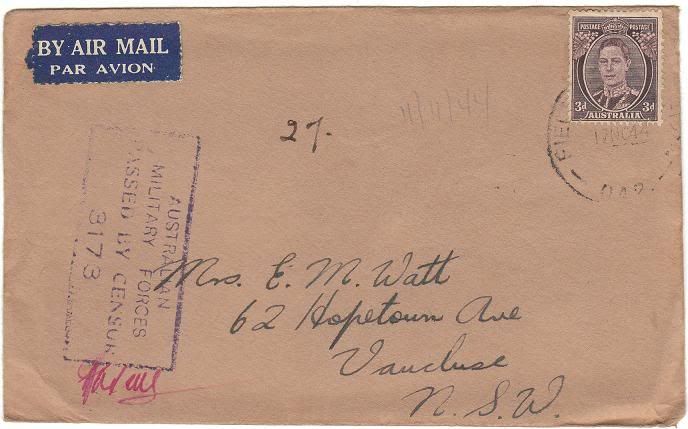 BY AIR MAIL
PAR AVION
POSTAGE POSTAGE
3d 3d
AUSTRALIA
11/11/44
27.
AUSTRALIAN
MILITARY FORCES
PASSED BY CENSOR
3173
Mrs. E. M. Watt
62 Hopetown Ave
Vaucluse
N.S.W.